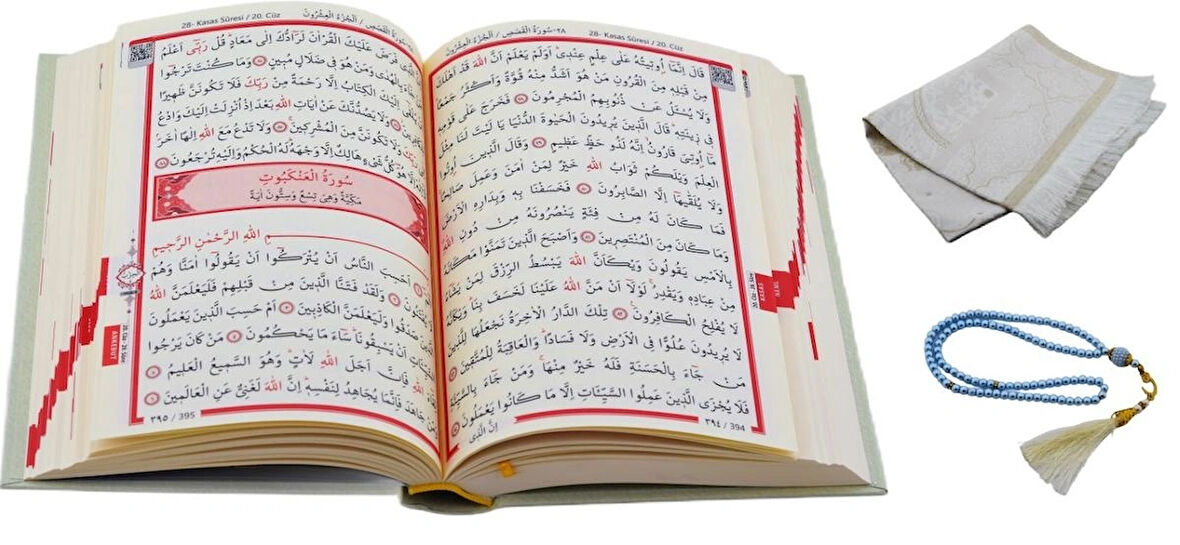 28- Kasas Sûresi / 20. Cüz ٢٨-سُورَةُ الْقَصَصِ / اَلْجُزْءُ الْعِشْرُونَ
قَالَ اِنَّمَٓا اُو۫ت۪يتُهُ عَلٰى عِلْمٍ عِنْد۪يۜ اَوَلَمْ يَعْلَمْ اَنَّ اللّٰهَ قَدْ اَهْلَكَ
مِنْ قَبْلِه۪ مِنَ الْقُرُونِ مَنْ هُوَ اَشَدُّ مِنْهُ قُوَّةً وَاَكْثَرُ جَمْعاًۜ
وَلَا يُسْـَٔلُ عَنْ ذُنُوبِهِمُ الْمُجْرِمُونَ ﴿٧٨﴾ فَخَرَجَ عَلٰى قَوْمِه۪
ف۪ي ز۪ينَتِه۪ۜ قَالَ الَّذ۪ينَ يُر۪يدُونَ الْحَيٰوةَ الدُّنْيَا يَا لَيْتَ لَنَا مِثْلَ
مَٓا اُو۫تِيَ قَارُونُۙ اِنَّهُ لَذُو حَظٍّ عَظ۪يمٍ ﴿٧٩﴾ وَقَالَ الَّذ۪ينَ اُو۫تُوا
الْعِلْمَ وَيْلَكُمْ ثَوَابُ اللّٰهِ خَيْرٌ لِمَنْ اٰمَنَ وَعَمِلَ صَالِحاًۚ
وَلَا يُلَقّٰيهَٓا اِلَّا الصَّابِرُونَ ﴿٨٠﴾ فَخَسَفْنَا بِه۪ وَبِدَارِهِ الْاَرْضَ
فَمَا كَانَ لَهُ مِنْ فِئَةٍ يَنْصُرُونَهُ مِنْ دُونِ اللّٰهِۗ
وَمَا كَانَ مِنَ الْمُنْتَصِر۪ينَ ﴿٨١﴾ وَاَصْبَحَ الَّذ۪ينَ تَمَنَّوْا مَكَانَهُ
بِالْاَمْسِ يَقُولُونَ وَيْكَاَنَّ اللّٰهَ يَبْسُطُ الرِّزْقَ لِمَنْ يَشَٓاءُ
مِنْ عِبَادِه۪ وَيَقْدِرُۚ لَوْلَٓا اَنْ مَنَّ اللّٰهُ عَلَيْنَا لَخَسَفَ بِنَاۜ وَيْكَاَنَّهُ
لَا يُفْلِحُ الْكَافِرُونَ ﴿٨٢﴾ تِلْكَ الدَّارُ الْاٰخِرَةُ نَجْعَلُهَا لِلَّذ۪ينَ
لَا يُر۪يدُونَ عُلُواًّ فِي الْاَرْضِ وَلَا فَسَاداًۜ وَالْعَاقِبَةُ لِلْمُتَّق۪ينَ ﴿٨٣﴾
مَنْ جَٓاءَ بِالْحَسَنَةِ فَلَهُ خَيْرٌ مِنْهَاۚ وَمَنْ جَٓاءَ بِالسَّيِّئَةِ
فَلَا يُجْزَى الَّذ۪ينَ عَمِلُوا السَّيِّـَٔاتِ اِلَّا مَا كَانُوا يَعْمَلُونَ ﴿٨٤﴾
اِنَّ الَّذ۪ي
٣٩٤ / 394
KASAS
28- Kasas Sûresi / 20. Cüz سُورَةُ الْقَصَصِ / اَلْجُزْءُ الْعِشْرُونَ
فَرَضَ عَلَيْكَ الْقُرْاٰنَ لَرَٓادُّكَ اِلٰى مَعَادٍۜ قُلْ رَبّ۪ٓي اَعْلَمُ
بِالْهُدٰى وَمَنْ هُوَ ف۪ي ضَلَالٍ مُب۪ينٍ ﴿٨٥﴾ وَمَا كُنْتَ تَرْجُٓوا
يُلْقٰٓى اِلَيْكَ الْكِتَابُ اِلَّا رَحْمَةً مِنْ رَبِّكَ فَلَا تَكُونَنَّ ظَه۪يراً
وَلَا يَصُدُّنَّكَ عَنْ اٰيَاتِ اللّٰهِ بَعْدَ اِذْ اُنْزِلَتْ اِلَيْكَ وَادْعُ
رَبِّكَ وَلَا تَكُونَنَّ مِنَ الْمُشْرِك۪ينَۚ ﴿٨٧﴾ وَلَا تَدْعُ مَعَ اللّٰهِ اِلٰهاً اٰخَرَۢ
اِلَّا هُوَ۠ كُلُّ شَيْءٍ هَالِكٌ اِلَّا وَجْهَهُۜ لَهُ الْحُكْمُ وَاِلَيْهِ تُرْجَعُونَ ﴿٨٨﴾
سُورَةُ الْعَنْكَبُوتِ
مَكِّيَّةٌ وَهِيَ تِسْعٌ وَسِتُّونَ اٰيَةً
اللّٰهِ الرَّحْمٰنِ الرَّح۪يمِ
اَحَسِبَ النَّاسُ اَنْ يُتْرَكُٓوا اَنْ يَقُولُٓوا اٰمَنَّا وَهُمْ
وَلَقَدْ فَتَنَّا الَّذ۪ينَ مِنْ قَبْلِهِمْ فَلَيَعْلَمَنَّ اللّٰهُ
صَدَقُوا وَلَيَعْلَمَنَّ الْكَاذِب۪ينَ ﴿٣﴾ اَمْ حَسِبَ الَّذ۪ينَ يَعْمَلُونَ
اَنْ يَسْبِقُونَاۜ سَٓاءَ مَا يَحْكُمُونَ ﴿٤﴾ مَنْ كَانَ يَرْجُوا
اللّٰهِ فَاِنَّ اَجَلَ اللّٰهِ لَاٰتٍۜ وَهُوَ السَّم۪يعُ الْعَل۪يمُ ﴿٥﴾
جَاهَدَ فَاِنَّمَا يُجَاهِدُ لِنَفْسِه۪ۜ اِنَّ اللّٰهَ لَغَنِيٌّ عَنِ الْعَالَم۪ينَ ﴿٦﴾
٣٩٥ / 395
ANKEBUT